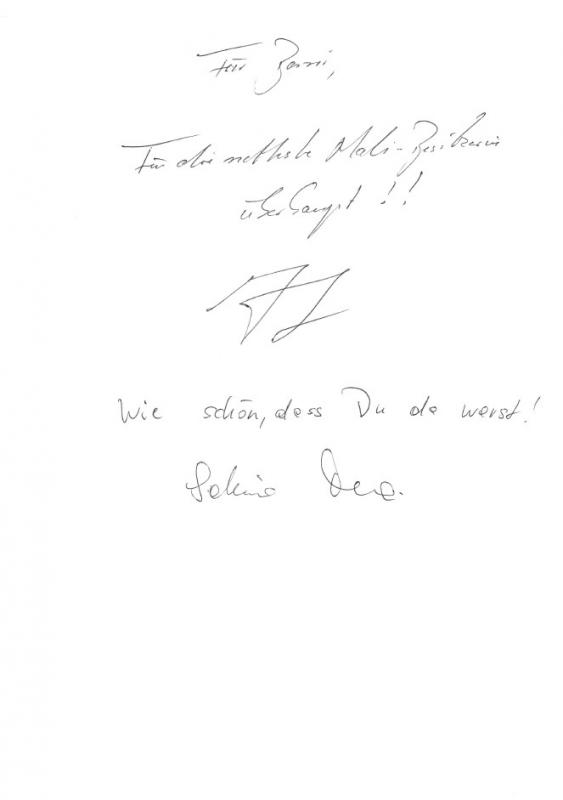 Für
Für die netteste Mali-Besitzerin
überhaupt!!
Wie schön, dass Du da warst!
Sabine